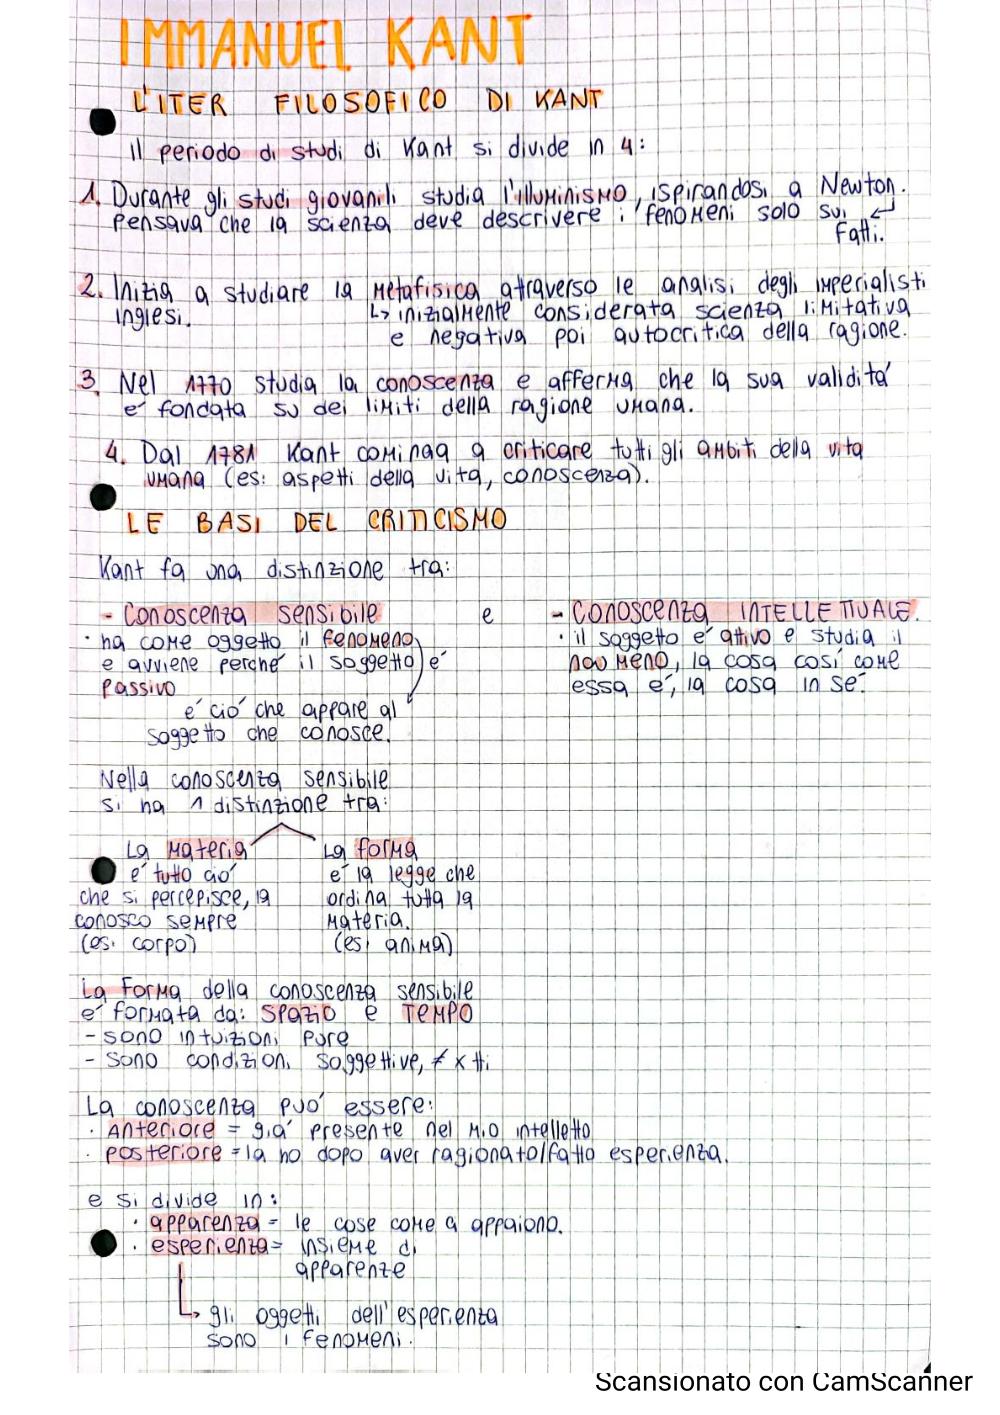 IMMANUEL KANT
L'ITER FILOSOFICO DI KANT
Il periodo di studi di Kant si divide in 4:
1. Durante gli studi giovanili studia l'illuminismo, ispirandosi a Newton.
Pensava che la scienza deve descrivere i fenomeni solo sui
fatti.
2. Inizia a studiare la metafisica atraverso le analisi degli imperialisti
inglesi.
↳ inizialmente considerata scienza limitativa
e negativa poi autocritica della ragione.
3. Nel 1770 studia la conoscenza e afferma che la sua validitá
é fondata su dei limiti della ragione umana.
4. Dal 1781 Kant cominaa a criticare tutti gli ambiti della vita
umana (es: aspetti della vita, conoscenza).
LE BASI DEL CRITICISMO
Kant fa una distinzione tra:
- Conoscenza sensibile e - Conoscenza INTELLETTUALE.
· ha come oggetto il fenomeno,
e avviene perché il soggetto é
passivo
é ció che appare al
soggetto che conosce.
· il soggetto é ativo e studia il
noumeno, la cosa cosí come
essa é, la cosa in sé.
Nella conoscenza sensibile
si ha 1 distinzione tra:
La materia
é tutto ció
che si percepisce, la
conosco sempre
(es: corpo)
La forma
é la legge che
ordina tutta la
materia.
(es: anima)
La forma della conoscenza sensibile
é formata da: spazio e TEMPO
- sono intuizioni pure
- sono condizioni soggettive, ≠ x tti
La conoscenza puó essere:
· Anteriore = giá presente nel mio intelletto
· posteriore = la ho dopo aver ragionato/fatto esperienza.
e si divide in:
· apparenza = le cose come a appaiono.
· esperienza = insieme di
apparenze
↳ gli oggetti dell'esperienza
sono i fenomeni.
Scansionato con CamScanner